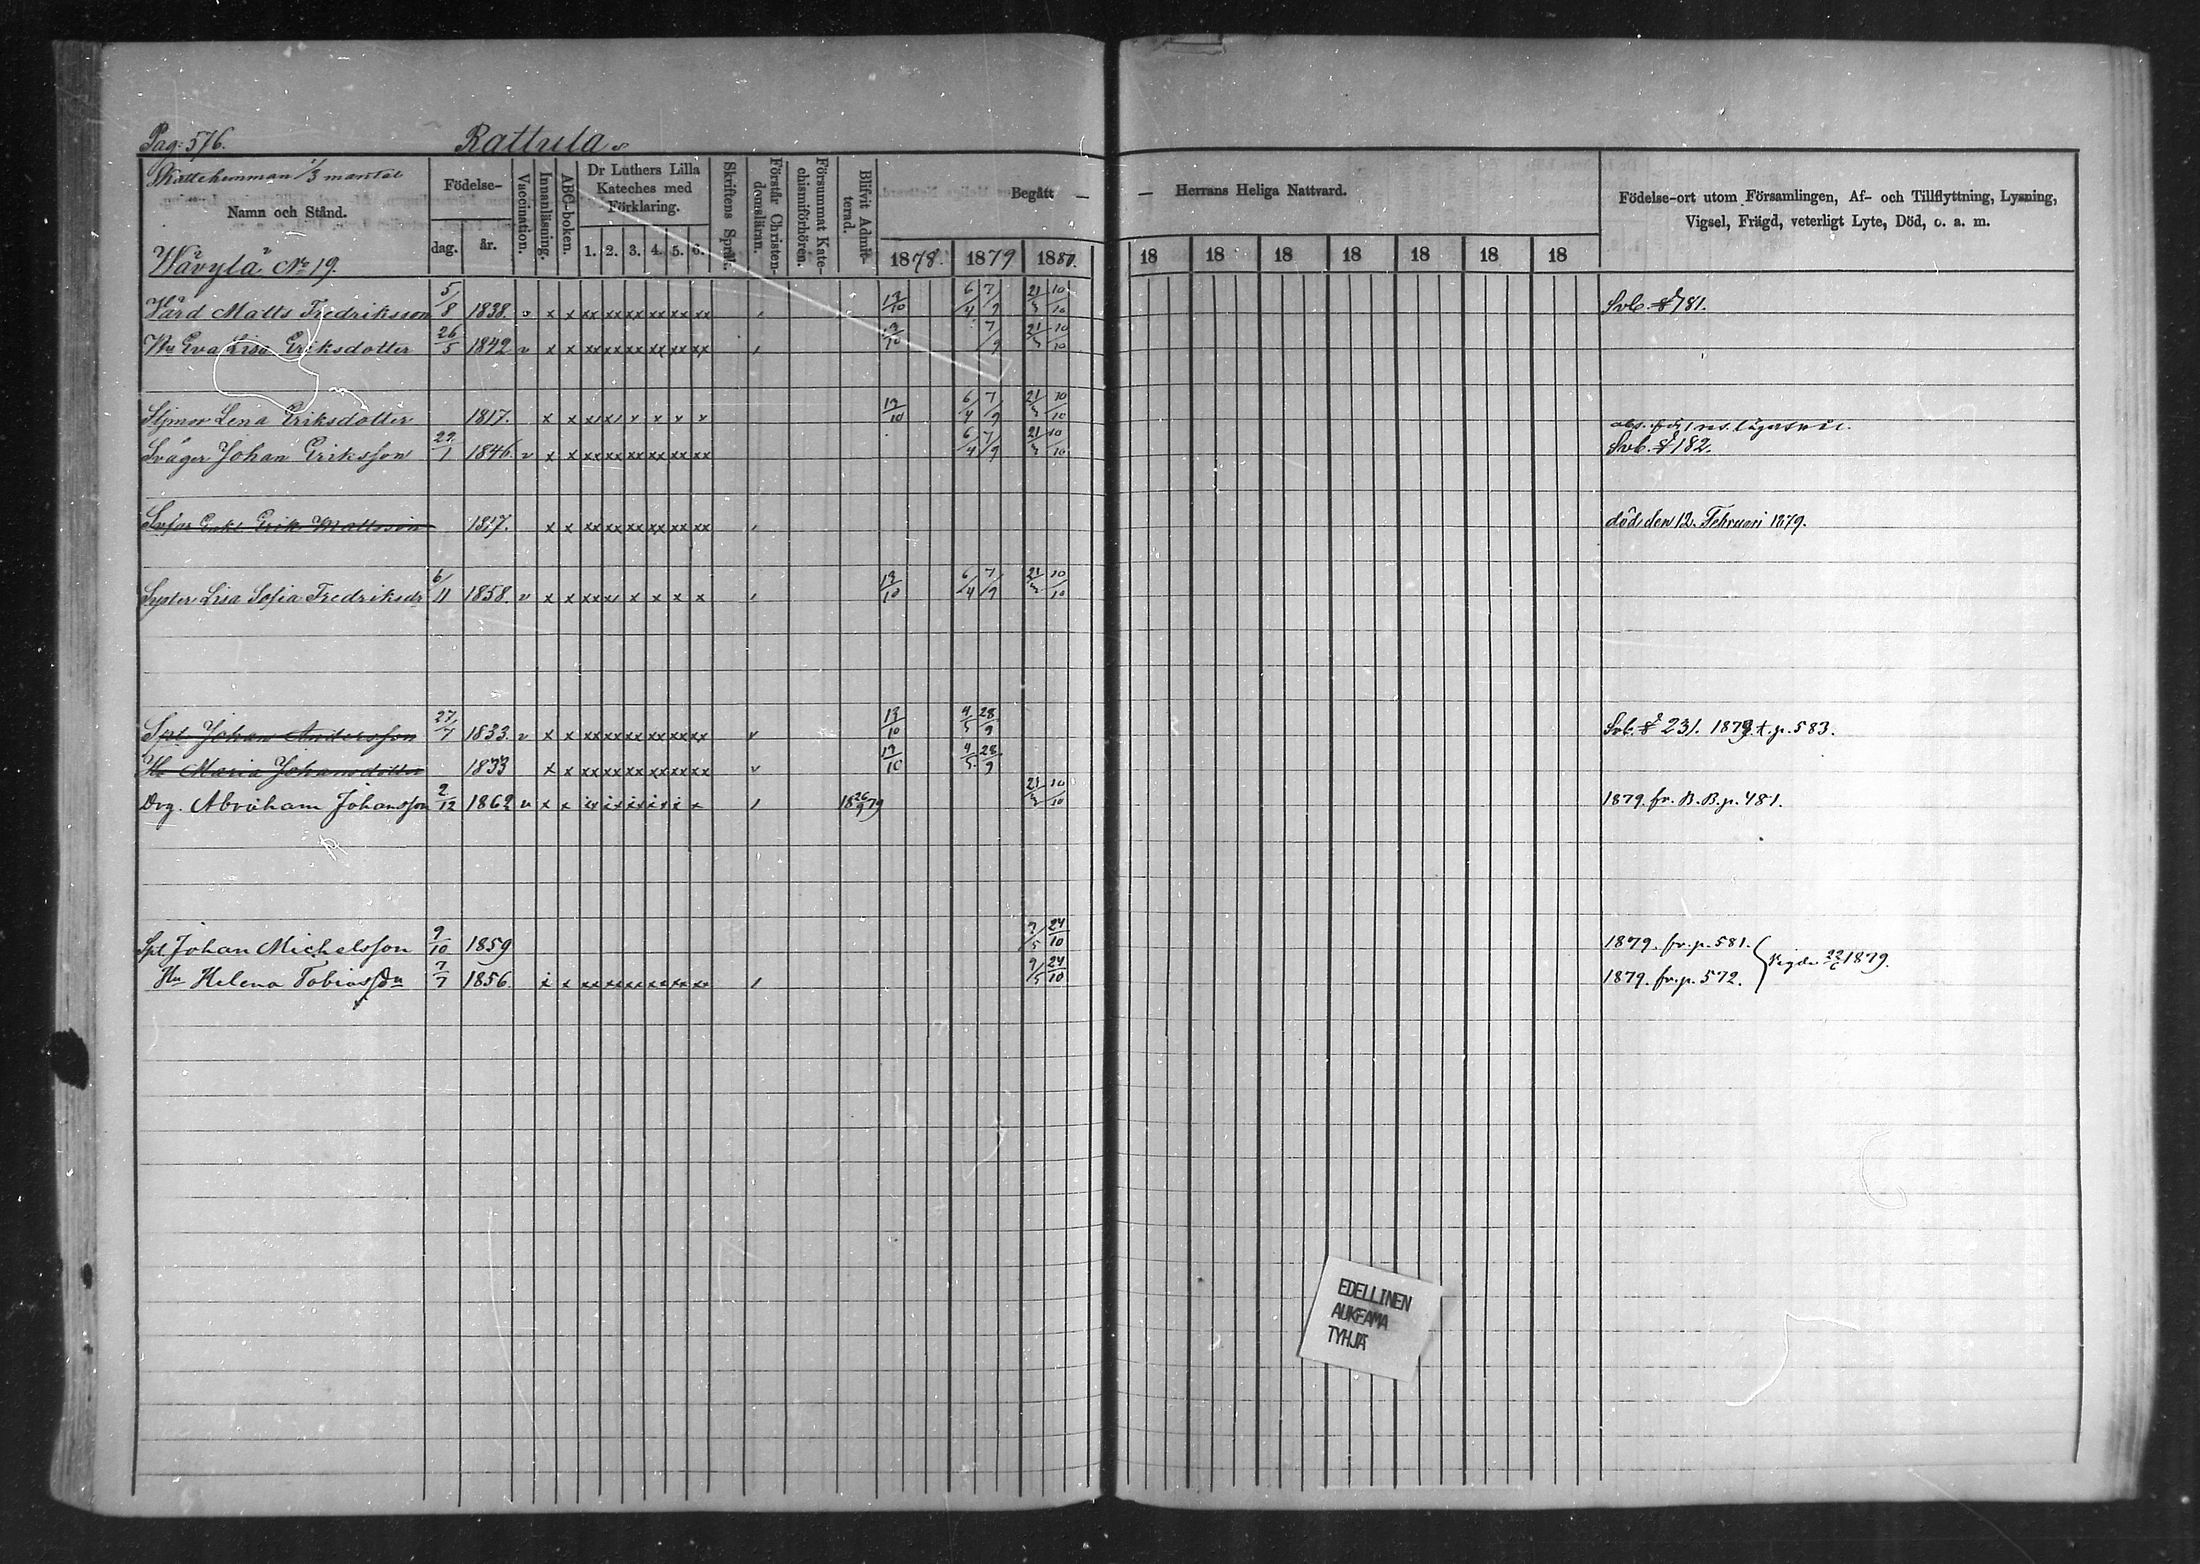 Pag: 576. Rattula
Skattehemman 1/3 mantal
Namn och Stånd.
Wävylä No 19.
Födelse-
dag. år.
Vaccination.
Innanläsning.
ABC-boken.
Dr Luthers Lilla
Kateches med
Förklaring.
1. 2. 3. 4. 5. 6.
Skriftens Språk.
Förstår Christen-
domsläran.
Försummat Kate-
chismiförhören.
Blifvit Admit-
terad.
Begått — — Herrans Heliga Nattvard.
1878. 1879 1880. 18 18 18 18 18 18 18
Födelse-ort utom Församlingen, Af- och Tillflyttning, Lysning,
Vigsel, Frägd, veterligt Lyte, Död, o. a. m.
Vård Matts Fredriksson 5/8 1838. v x x xx xx xx xx xx xx 19/10 6/4 7/9 21/3 10/10
Hu Eva Lisa Eriksdotter 26/5 1842 v x x xx xx xx xx xx xx 19/10 7/9 21/3 10/10
Stjmor Lena Eriksdotter 1817. 19/10 6/4 7/9 21/3 10/10
Svåger Johan Eriksson 29/1 1846. v x x xx xx xx xx xx xx 6/4 7/9 21/3 10/10 Svb. 182.
Erik Mattsson 1817. x x xx xx xx xx xx xx död den 12. Februari 1879.
Syster Lisa Sofia Fredriksdr 6/11 1858. v x x 19/10 6/4 7/9 21/3 10/10
Spt Johan Andersson 27/7 1833. v x x xx xx xx xx xx xx v 19/10 4/5 28/9 Svb. 231. 1879 t. p. 583.
Hu Maria Johansdotter 1833 x x xx xx xx xx xx xx v 19/10 4/5 28/9
Drg. Abraham Johansson 2/12 1862 v x x 18 26/9 79 21/3 10/10 1879. fr. B. B. p. 481.
Spt Johan Michelsson 9/10 1859 9/5 24/10 1879. fr. p. 581.
Hu Helena Tobiasdr 7/7 1856. 9/5 24/10 1879. fr. p. 572. Vigde 1879.
EDELLINEN
AUKEAMA
TYHJÄ